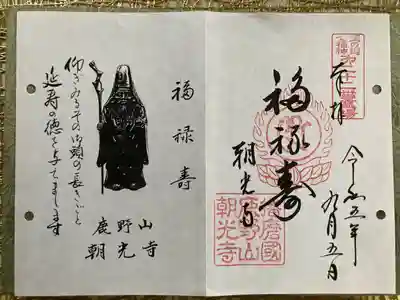 奉拝
令和五年
九月五日
福禄寿
朝光寺
播磨國
鹿野山
朝光寺
福禄寿
仰ぎみるその御頭の長きごと
延寿の徳を与てまします
鹿野山
朝光寺